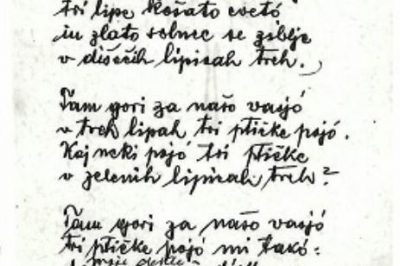 tri lipe košato cvetó
in zlato solnce se ziblje
v dišečih lipicah treh.
Tam gori za našo vasjó
v treh lipah tri ptičke pojó.
Kaj neki pojó tri ptičke
v zelenih lipicah treh?
Tam gori za našo vasjó
tri ptičke pojó mi takó: